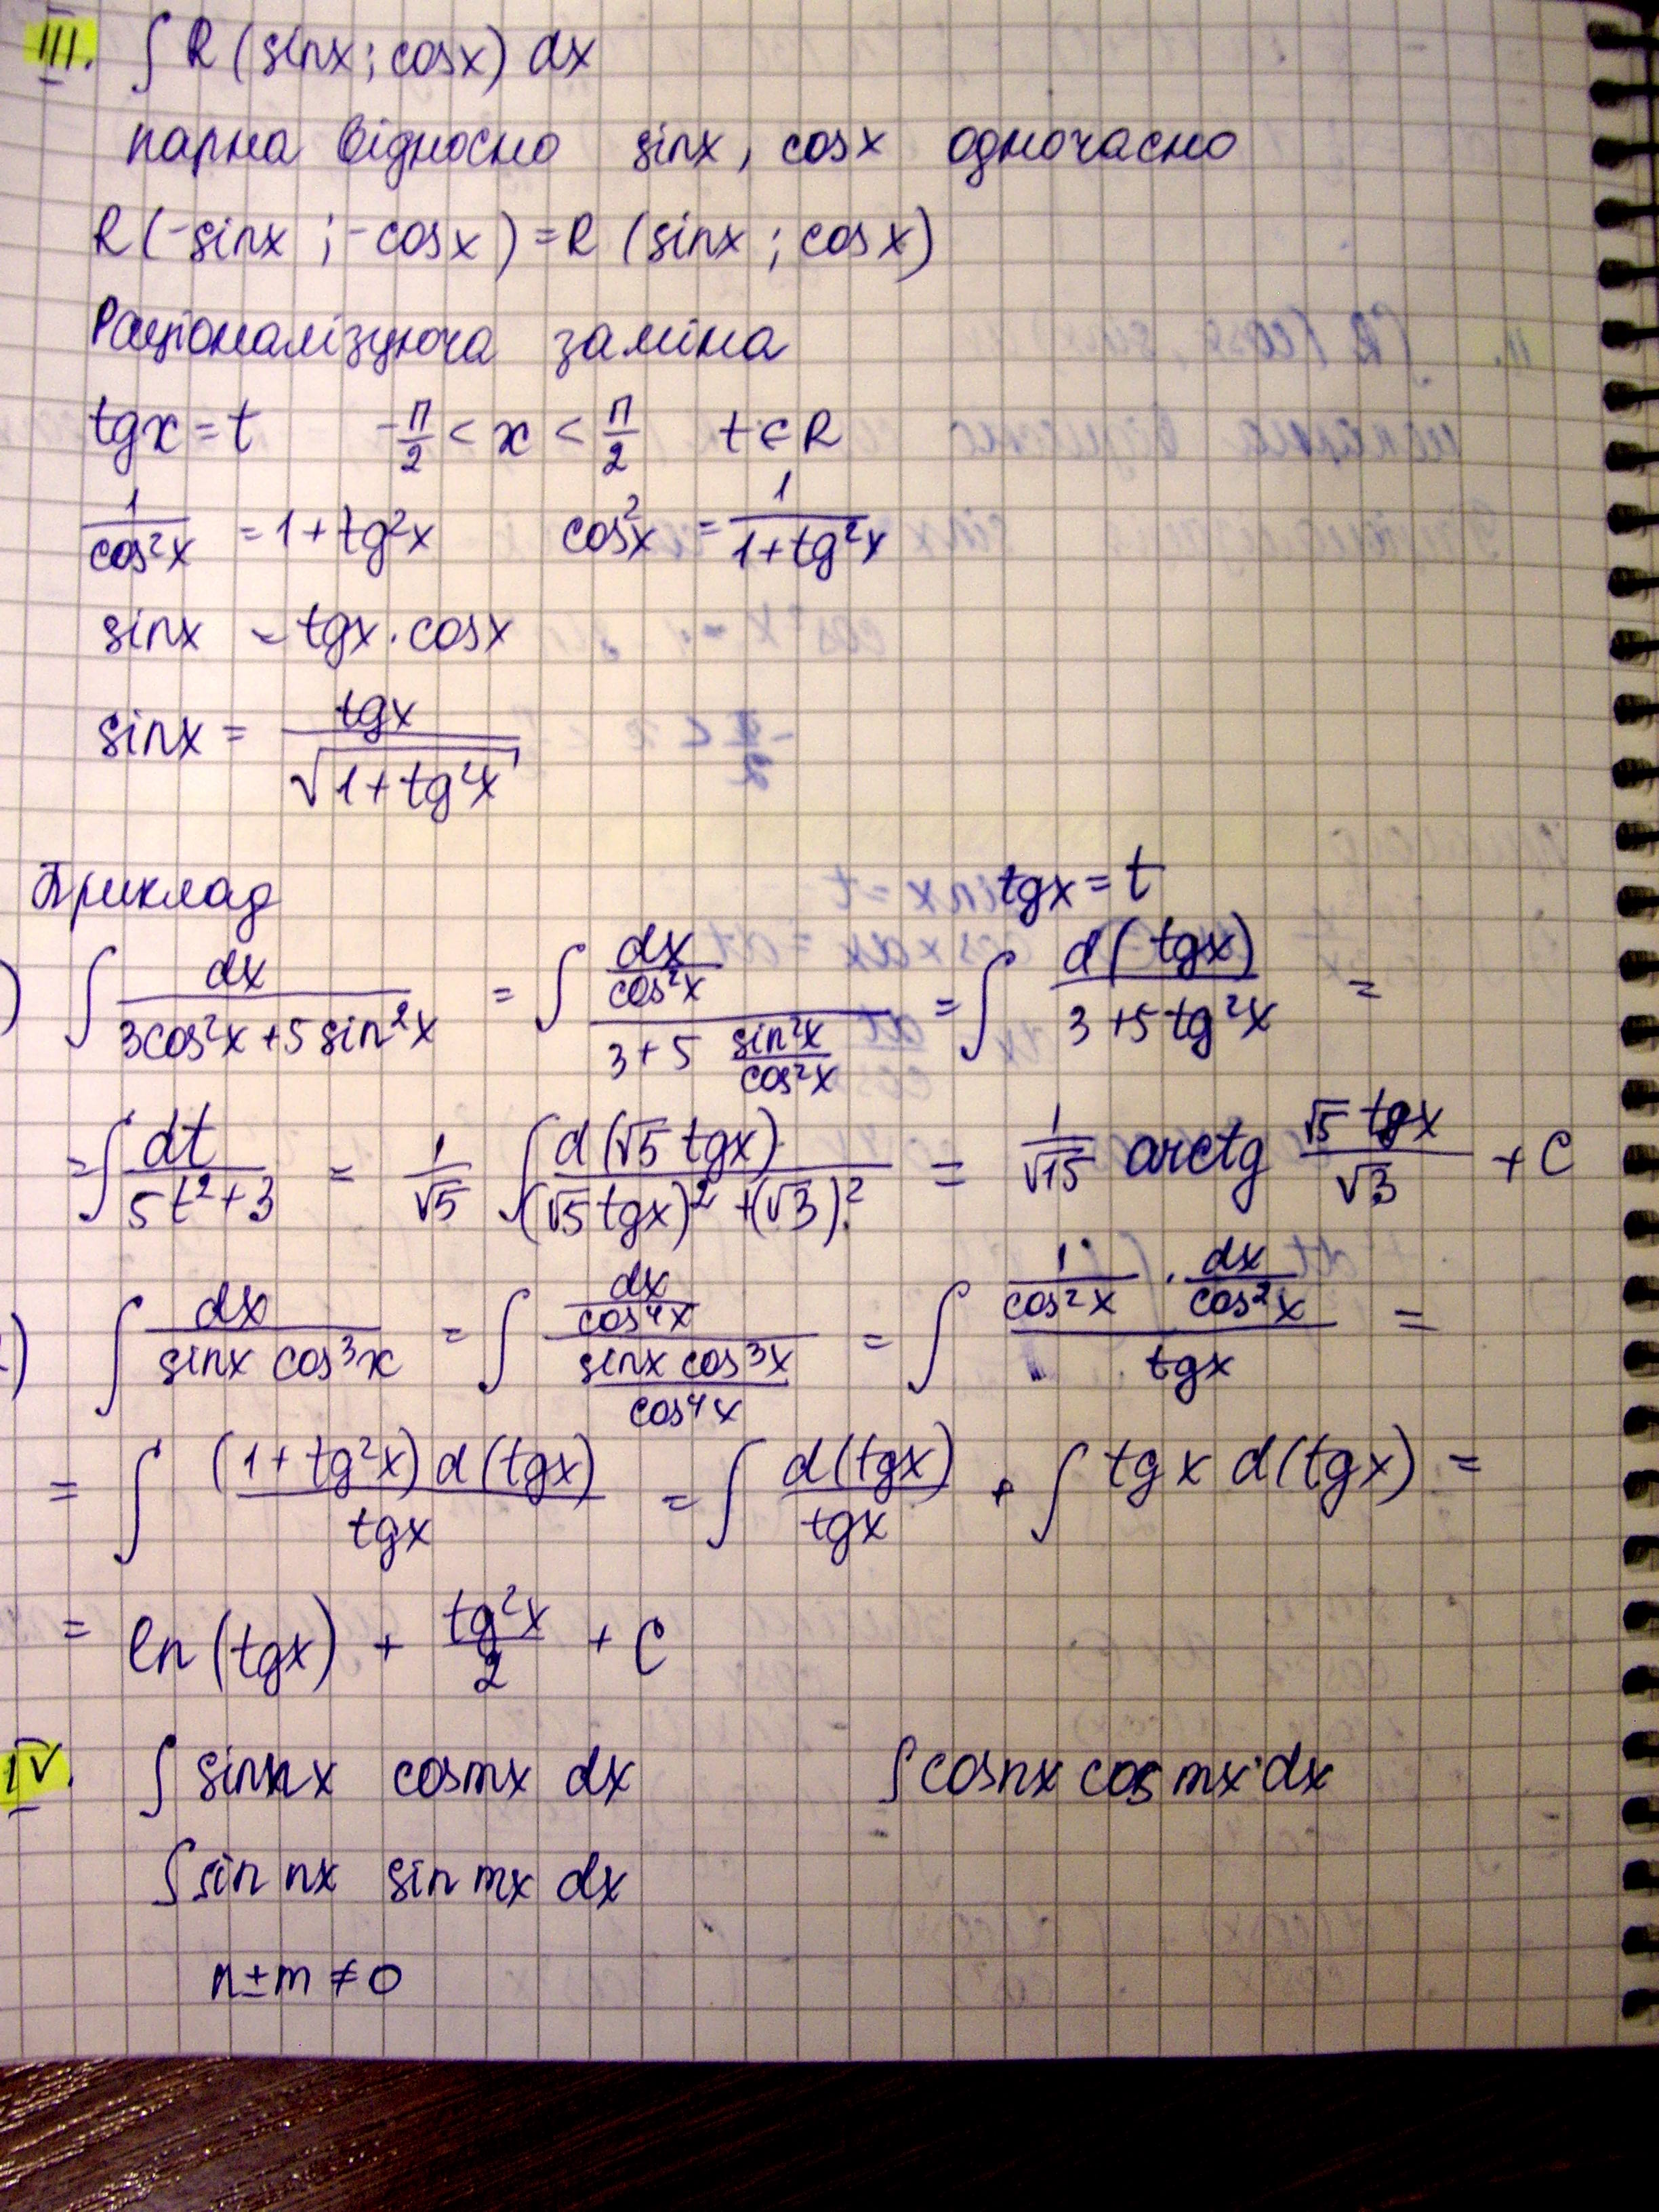 III. ∫ R (sinx ; cosx) dx
парна відносно sinx, cosx одночасно
R (-sinx ; -cosx) = R (sinx ; cosx)
Раціоналізуюча заміна
tgx = t -π/2 < x < π/2 t ∈ R
1/cos²x = 1 + tg²x cos²x = 1/(1 + tg²x)
sinx = tgx · cosx
sinx = tgx/√(1 + tg²x)
Приклад tgx = t
) ∫ dx/(3cos²x + 5 sin²x) = ∫ (dx/cos²x)/(3 + 5 sin²x/cos²x) = ∫ d(tgx)/(3 + 5 tg²x) =
= ∫ dt/(5t² + 3) = 1/√5 ∫ d(√5 tgx)/((√5 tgx)² + (√3)²) = 1/√15 arctg (√5 tgx)/√3 + C
2) ∫ dx/(sinx cos³x) = ∫ (dx/cos⁴x)/(sinx cos³x/cos⁴x) = ∫ (1/cos²x · dx/cos²x)/tgx =
= ∫ (1 + tg²x) d(tgx)/tgx = ∫ d(tgx)/tgx + ∫ tgx d(tgx) =
= ln (tgx) + tg²x/2 + C
IV. ∫ sin nx cosmx dx ∫ cosnx cos mx dx
∫ sin nx sin mx dx
n ± m ≠ 0